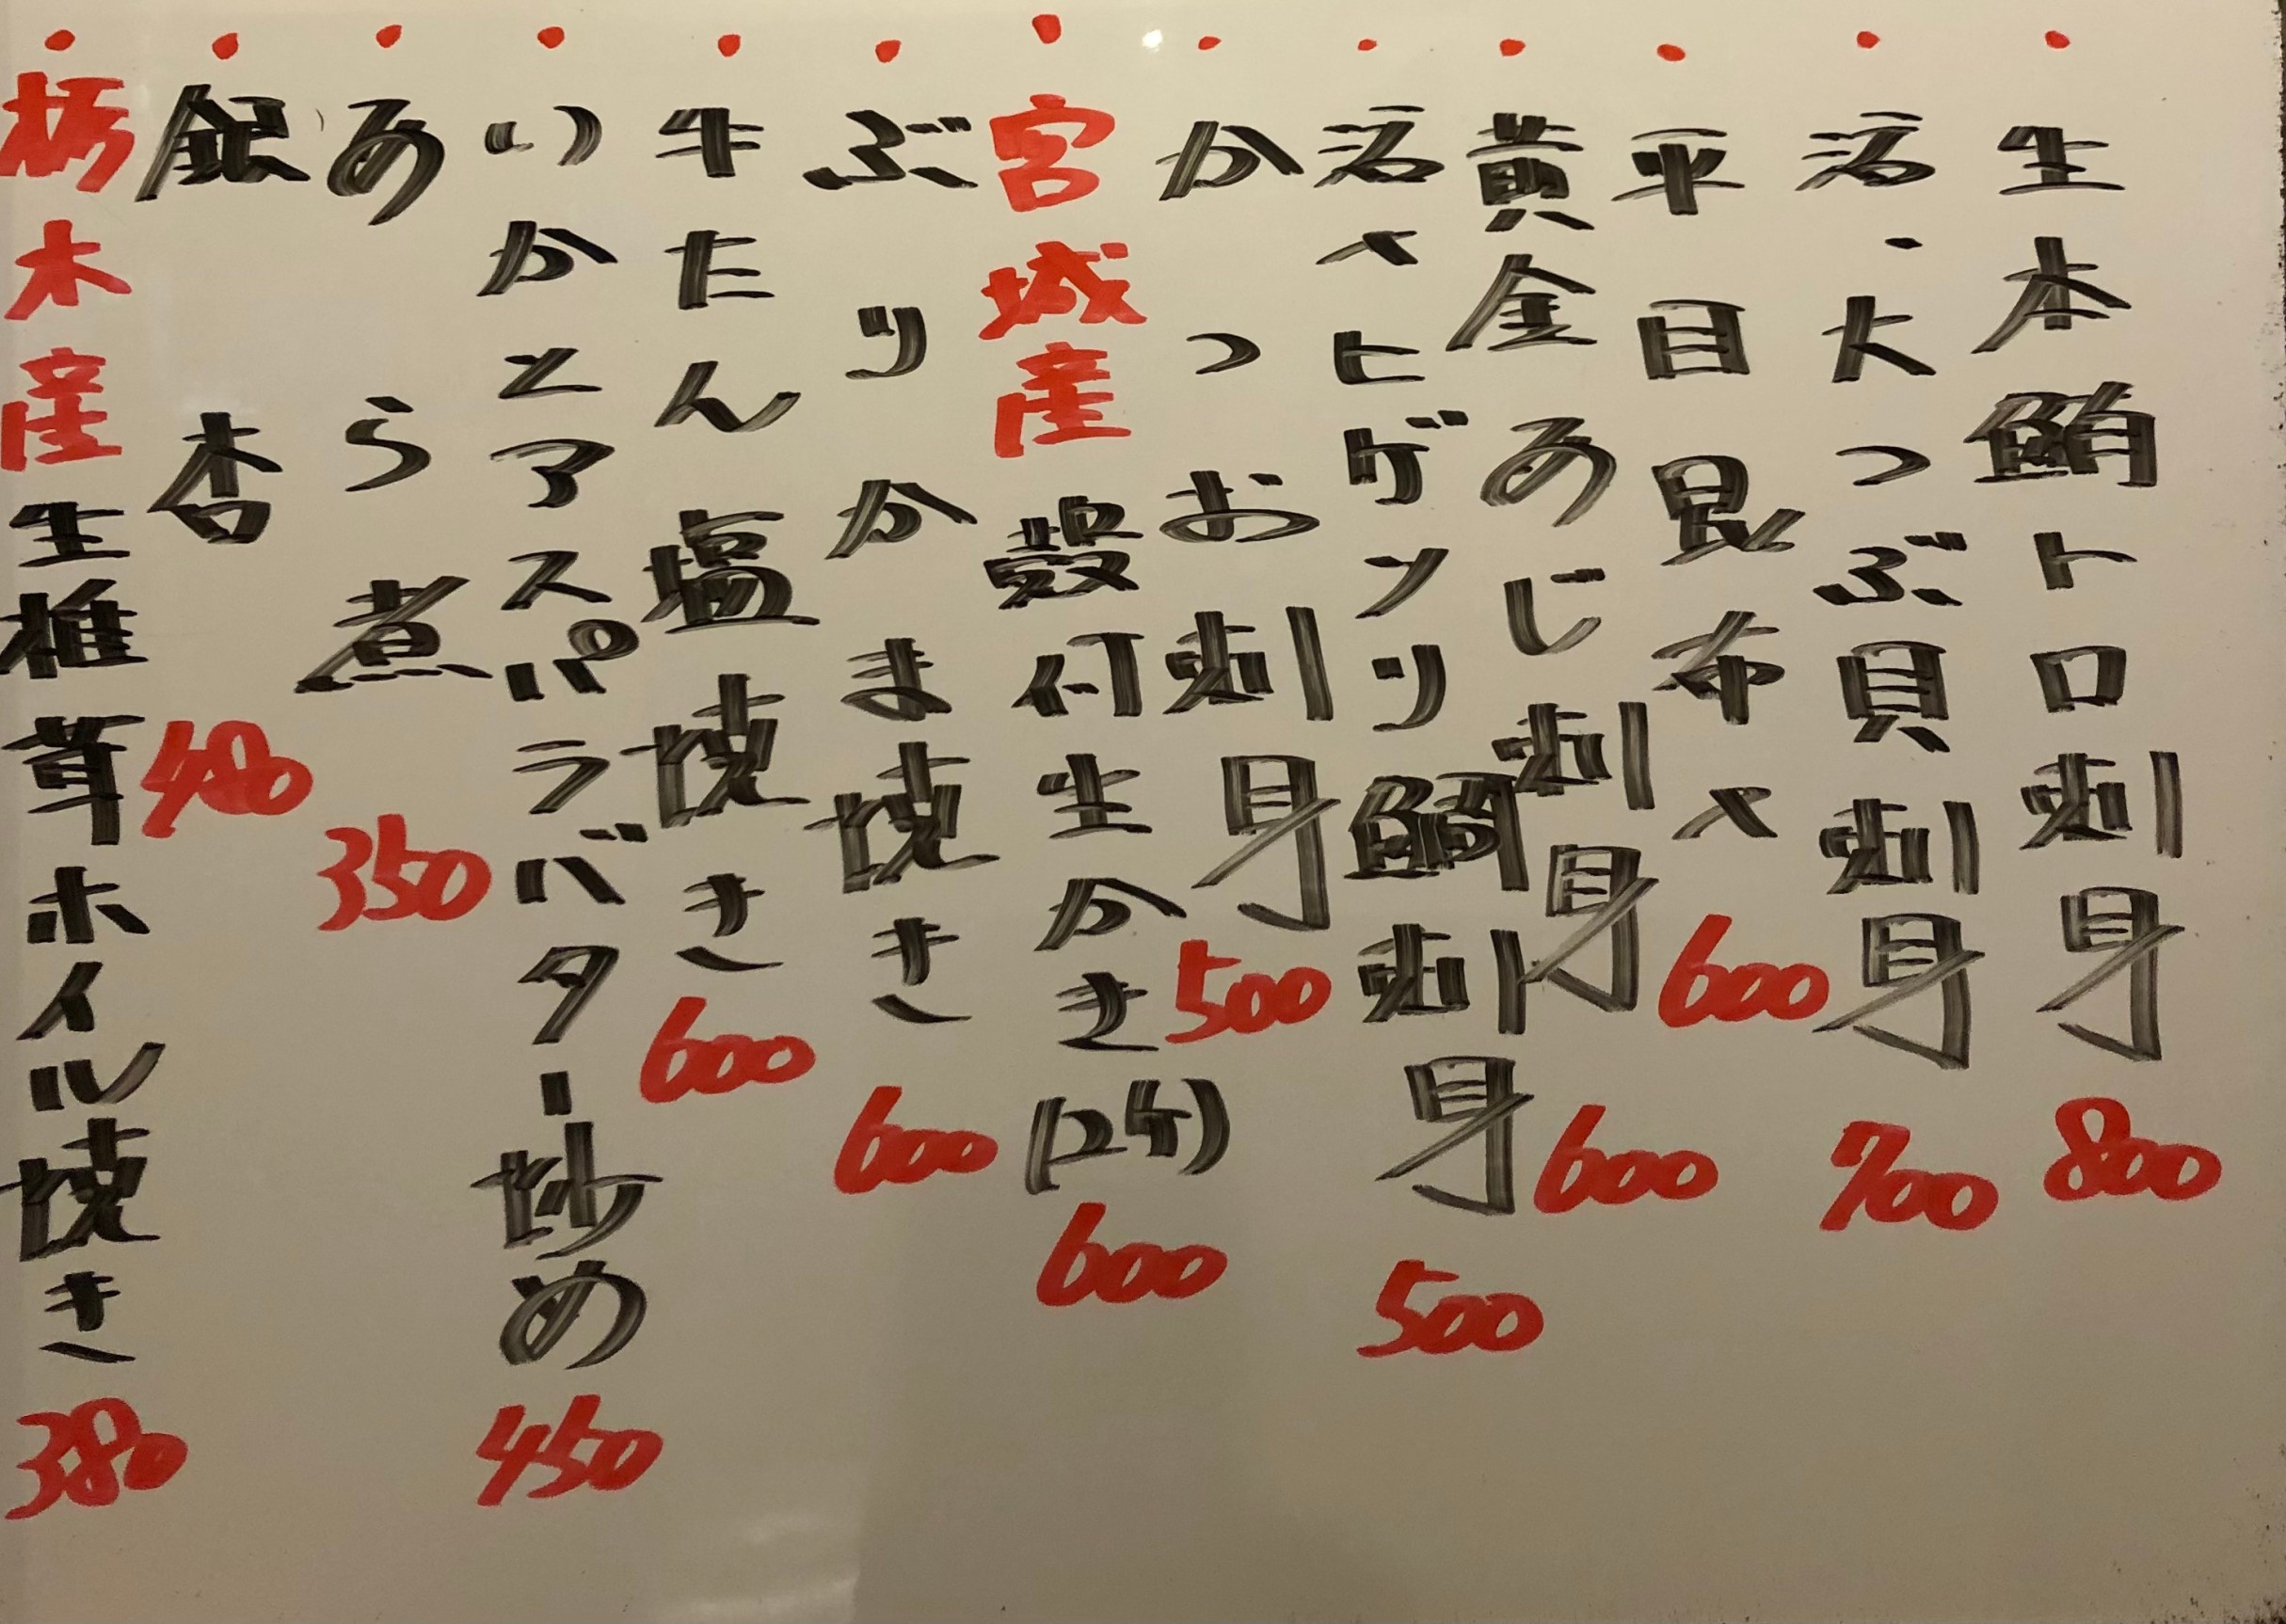 ・生本鮪トロ刺身 800
・活・大つぶ貝刺身 700
・平目昆布〆 600
・黄金あじ刺身 600
・活〆ヒゲソリ鯛刺身 500
・かつお刺身 500
・宮城産殻付生かき(2ケ) 600
・ぶりかま焼き 600
・牛たん塩焼き 600
・いかとアスパラバター炒め 450
・あら煮 350
・銀杏 480
・栃木産生椎茸ホイル焼き 380